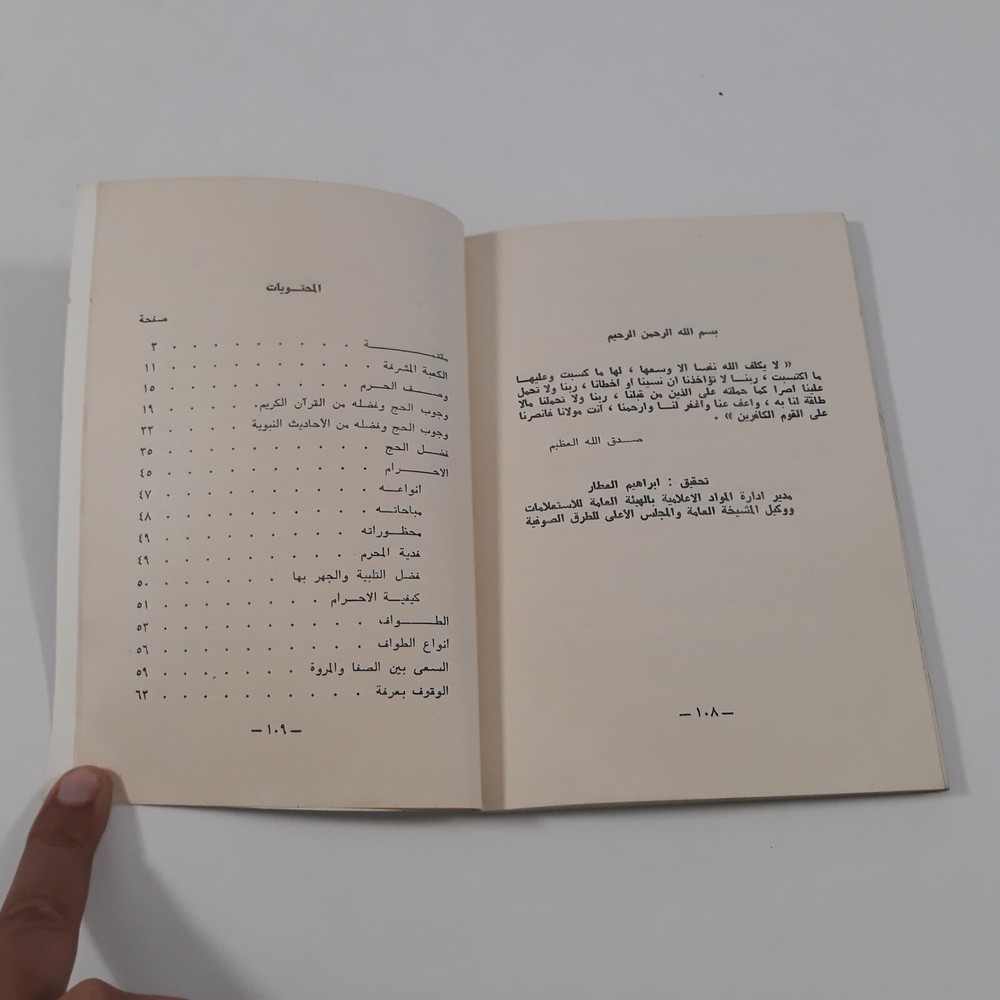 بسم الله الرحمن الرحيم
« لا يكلف الله نفسا الا وسعها ، لها ما كسبت وعليها
ما اكتسبت ، ربنا لا تؤاخذنا ان نسينا او اخطانا ، ربنا ولا تحمل
علينا اصرا كما حملته على الذين من قبلنا ، ربنا ولا تحملنا مالا
طاقة لنا به ، واعف عنا واغفر لنا وارحمنا ، أنت مولانا فانصرنا
على القوم الكافرين » .
صدق الله العظيم
تحقيق : ابراهيم العطار
مدير ادارة المواد الاعلامية بالهيئة العامة للاستعلامات
ووكيل المشيخة العامة والمجلس الاعلى للطرق الصوفية
— ١٠٨ —
المحتويات
صفحة
مقدمة . . . . . . . . . ٣
الكعبة المشرفة . . . . . . . . . ١١
وصف الحرم . . . . . . . . . ١٥
وجوب الحج وفضله من القرآن الكريم . . . . ١٩
وجوب الحج وفضله من الأحاديث النبوية . . . . ٢٣
فضل الحج . . . . . . . . . ٣٥
الاحرام . . . . . . . . . ٤٥
انواعه . . . . . . . . . ٤٧
مباحاته . . . . . . . . . ٤٨
محظوراته . . . . . . . . . ٤٩
فدية المحرم . . . . . . . . . ٤٩
فضل التلبية والجهر بها . . . . . . ٥٠
كيفية الاحرام . . . . . . . . ٥١
الطواف . . . . . . . . . ٥٣
انواع الطواف . . . . . . . . . ٥٦
السعى بين الصفا والمروة . . . . . . ٥٩
الوقوف بعرفة . . . . . . . . . ٦٣
— ١٠٩ —